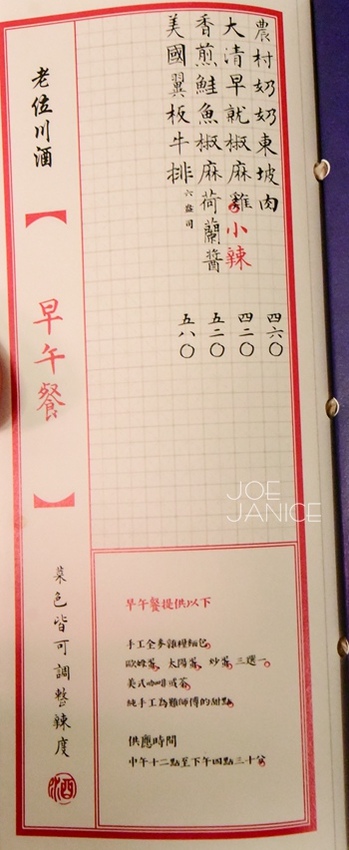 農村奶奶東坡肉 四六〇
大清早就椒麻雞 小辣 四二〇
香煎鮭魚椒麻荷蘭醬 五二〇
美國翼板牛排 六盎司 五八〇
老位川酒
【早午餐】
菜色皆可調整辣度
早午餐提供以下
手工全麥雜糧麵包。
歐姆蛋、太陽蛋、炒蛋,三選一。
美式咖啡或茶。
純手工為難師傅的甜點。
供應時間
中午十二點至下午四點三十分。
JOE
JANICE